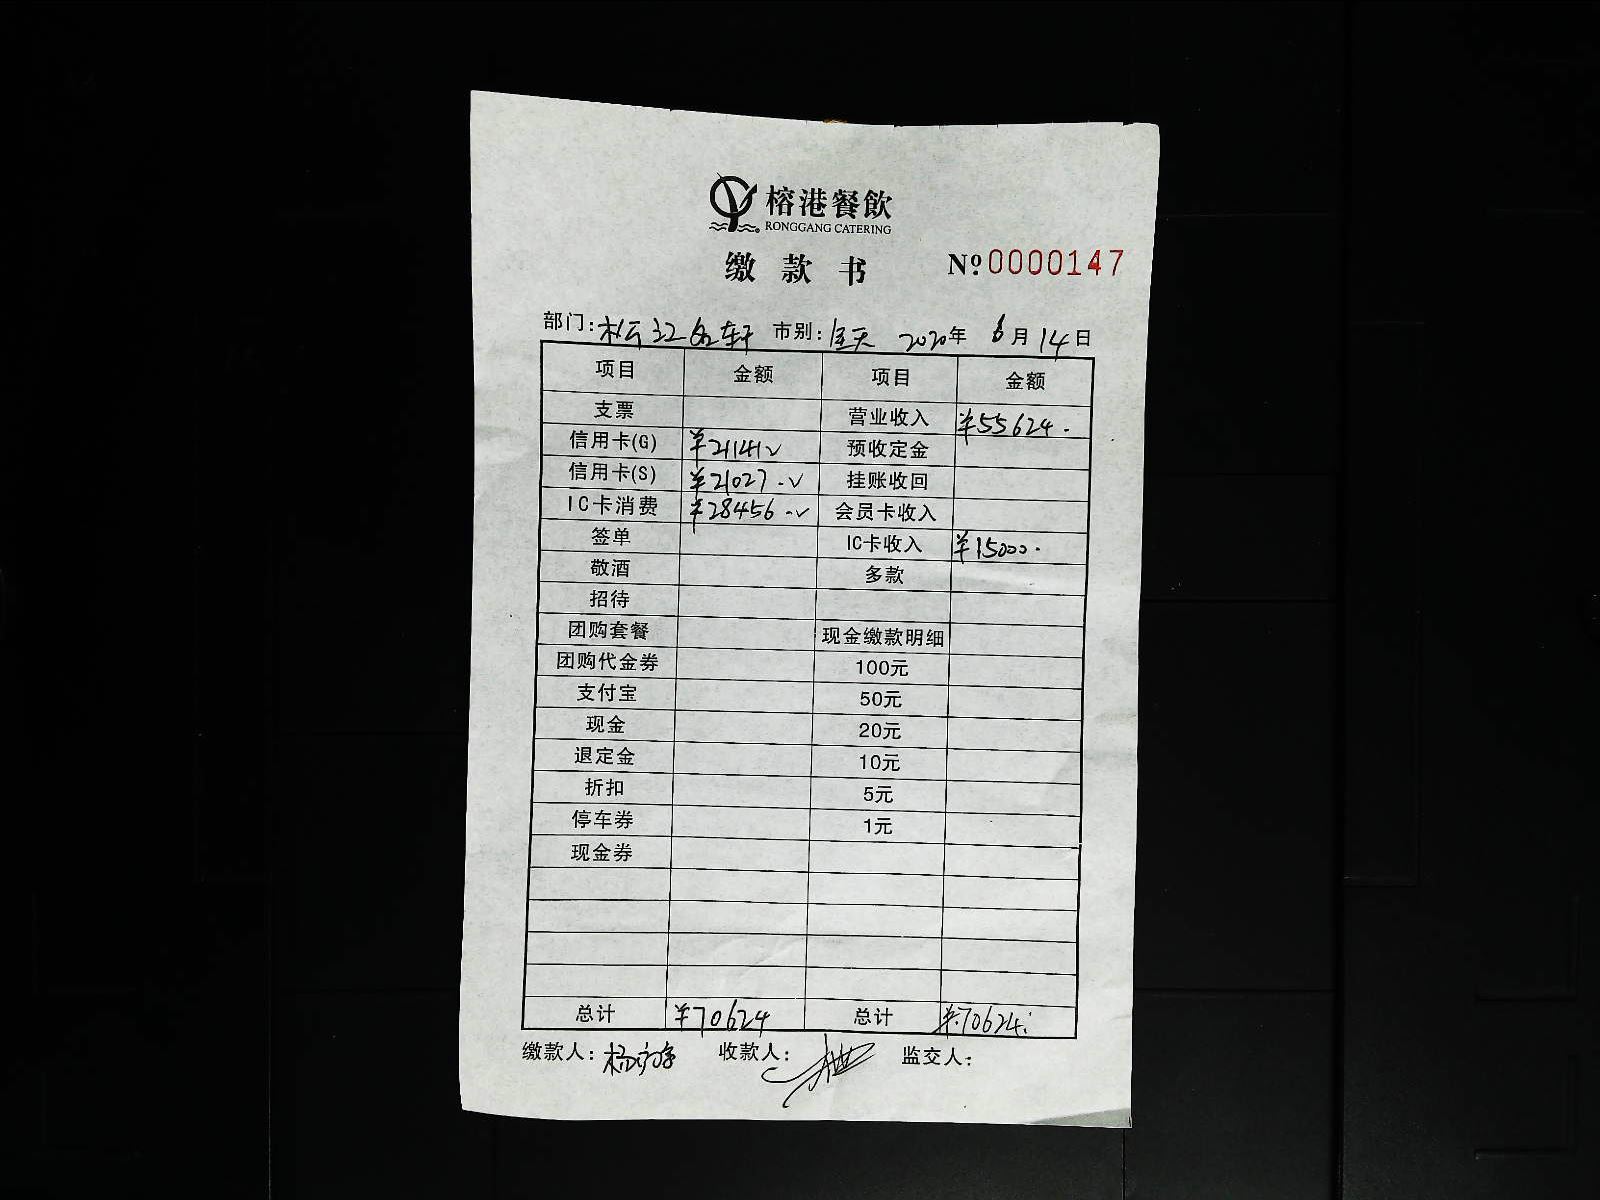 榕港餐飲
RONGGANG CATERING
缴款书 №0000147
部门：松江名轩 市别：全天 2020年 6月14日
项目 金额 项目 金额
支票 营业收入 ¥55624.
信用卡(G) ¥21141 预收定金
信用卡(S) ¥21027. 挂账收回
IC卡消费 ¥28456. 会员卡收入
签单 IC卡收入 ¥15000.
敬酒 多款
招待
团购套餐 现金缴款明细
团购代金券 100元
支付宝 50元
现金 20元
退定金 10元
折扣 5元
停车券 1元
现金券
总计 ¥70624 总计 ¥70624.
缴款人：杨 收款人： 监交人：